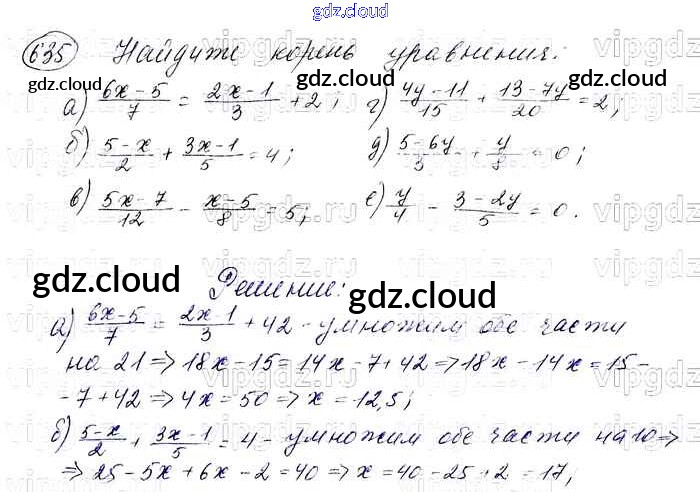 gdz.cloud
635 Найдите корень уравнения:
gdz.cloud gdz.cloud
а) (6x-5)/7 = (2x-1)/3 + 2; г) (4y-11)/15 + (13-7y)/20 = 2;
б) (5-x)/2 + (3x-1)/5 = 4; д) (5-6y)/3 + y/8 = 0;
в) (5x-7)/12 - (x-5)/8 = 5; е) y/4 - (3-2y)/5 = 0.
gdz.cloud Решение: gdz.cloud
а) (6x-5)/7 = (2x-1)/3 + 42 - умножим обе части
на 21 ⇒ 18x-15=14x-7+42 ⇒ 18x-14x=15-
-7+42 ⇒ 4x=50 ⇒ x=12,5;
б) (5-x)/2 + (3x-1)/5 = 4 - умножим обе части на 10 ⇒
⇒ 25-5x+6x-2=40 ⇒ x=40-25+2=17;